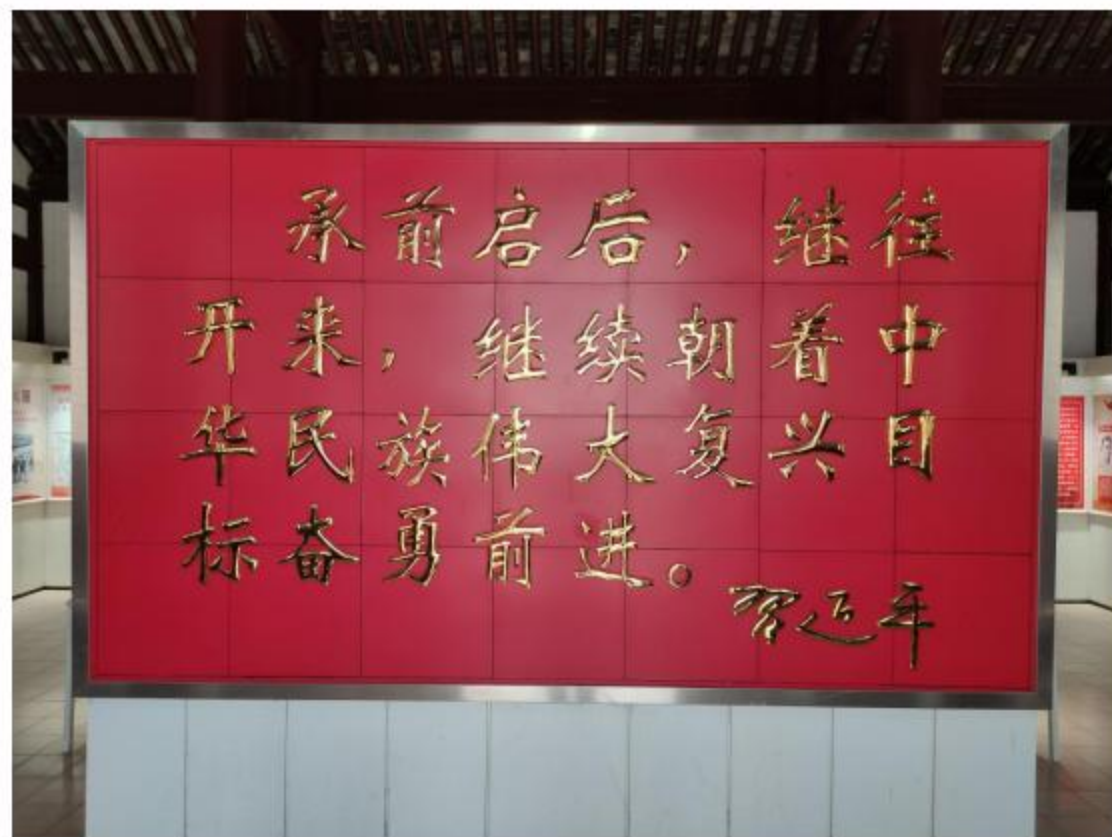 承前启后，继往
开来，继续朝着中
华民族伟大复兴目
标奋勇前进。
习近平